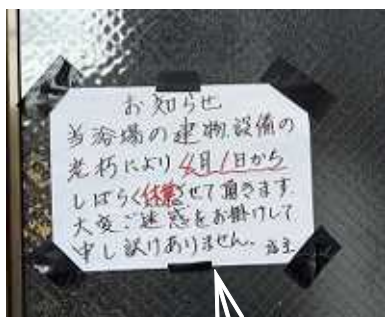 お知らせ
当浴場の建物、設備の
老朽により4月1日から
しばらく休業させて頂きます
大変ご迷惑をお掛けして
申し訳ありません。 店主